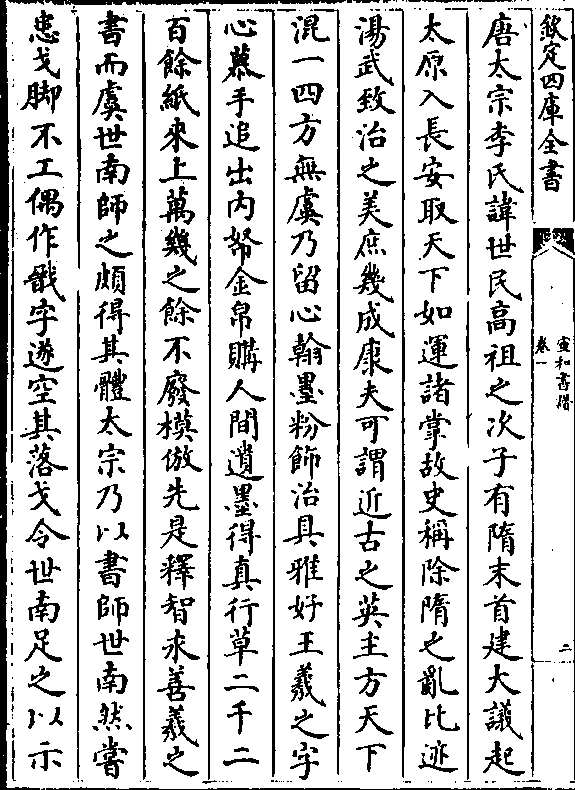 欽定四庫全書
宣和書譜
卷一
二
唐太宗李氏諱世民高祖之次子有隋末首建大議起
太原入長安取天下如運諸掌故史稱除隋之亂比迹
湯武致治之美庶幾成康夫可謂近古之英主方天下
混一四方無虞乃留心翰墨粉飾治具雅好王羲之字
心慕手追出内帑金帛購人間遺墨得真行草二千二
百餘紙來上萬幾之餘不廢模倣先是釋智永善羲之
書而虞世南師之頗得其體太宗乃以書師世南然嘗
患戈脚不工偶作戩字遂空其落戈令世南足之以示